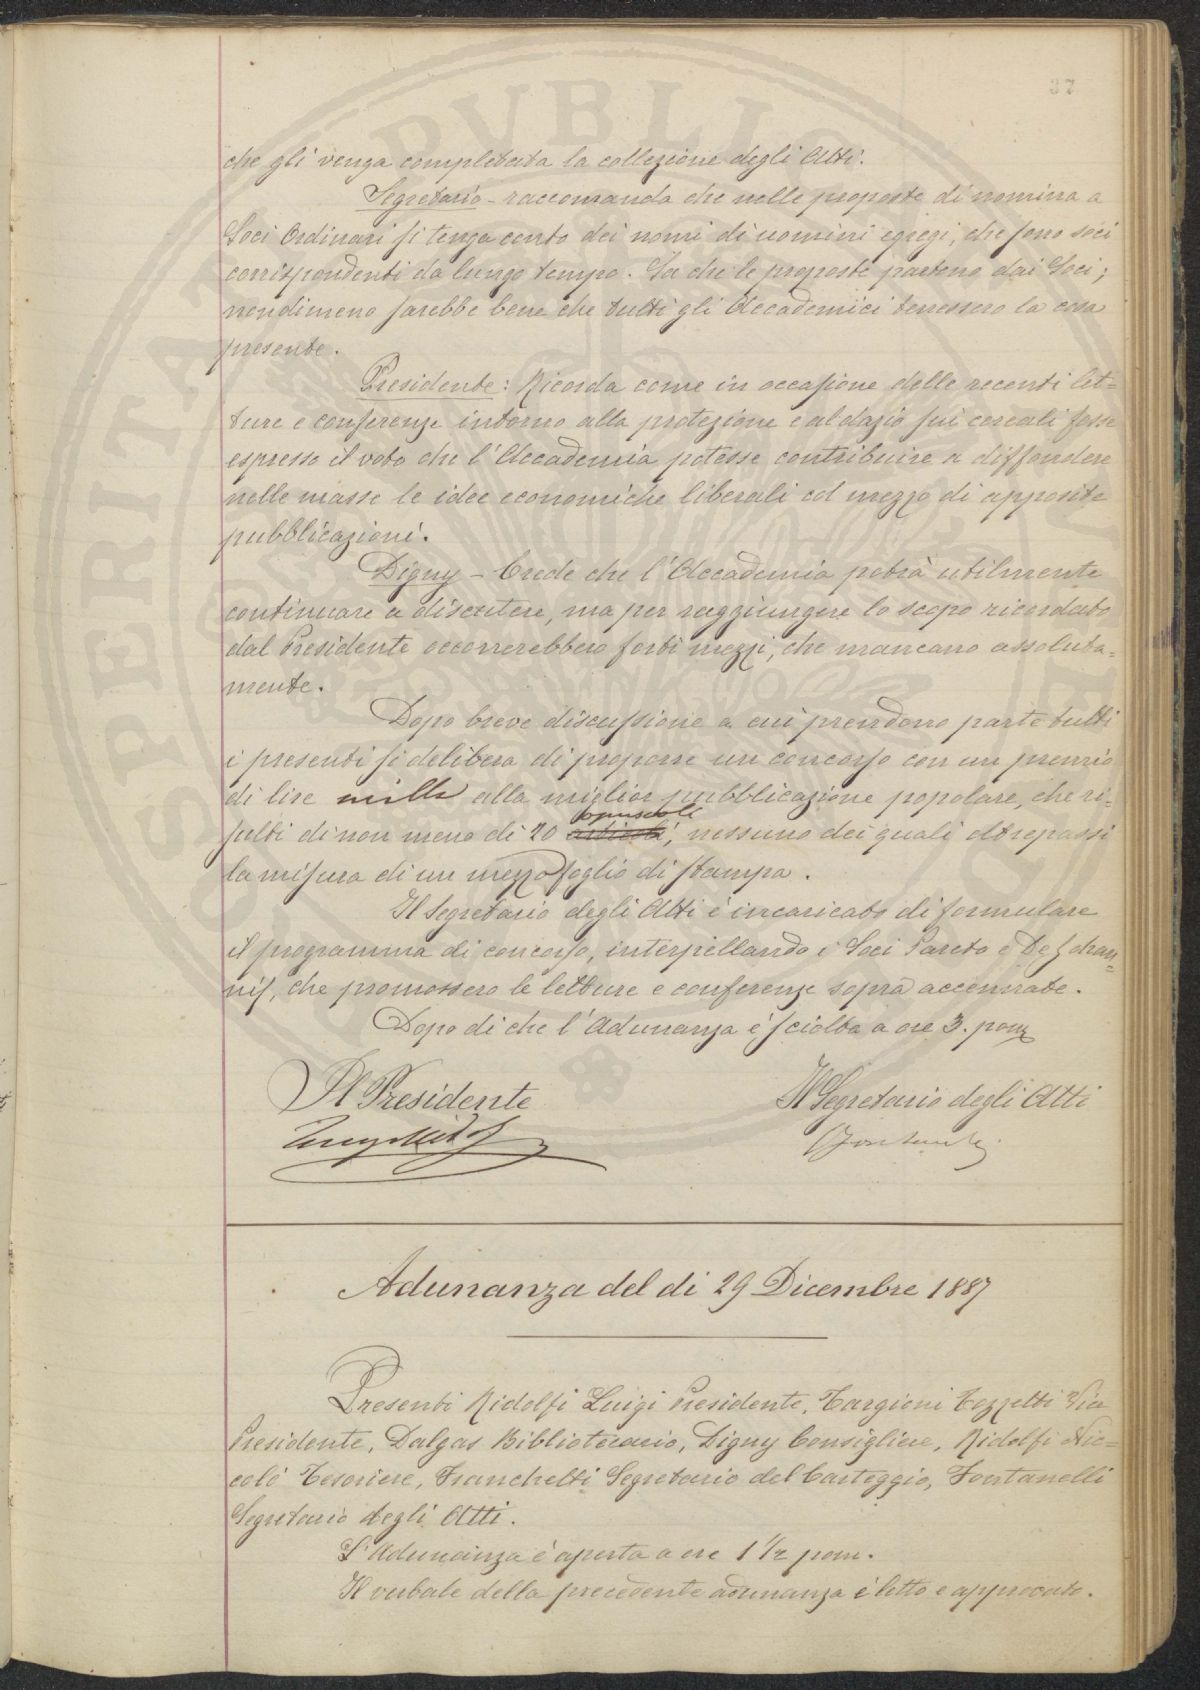 37
che gli venga completata la collezione degli Atti.
Segretario - raccomanda che nelle proposte di nomina a
Soci Ordinari si tenga conto dei nomi di uomini egregi, che sono soci
corrispondenti da lungo tempo. Sa che le proposte partono dai Soci;
nondimeno sarebbe bene che tutti gli Accademici tenessero la cosa
presente.
Presidente: Ricorda come in occasione delle recenti let=
ture e conferenze intorno alla protezione e al dazio sui cereali fosse
espresso il voto che l'Accademia potesse contribuire a diffondere
nelle masse le idee economiche liberali col mezzo di apposite
pubblicazioni.
Digny - Crede che l'Accademia potrà utilmente
continuare a discutere, ma per raggiungere lo scopo ricordato
dal Presidente occorrerebbero forti mezzi, che mancano assoluta=
mente.
Dopo breve discussione a cui prendono parte tutti
i presenti si delibera di proporre un concorso con un premio
di lire mille alla miglior pubblicazione popolare, che ri=
sulti di non meno di 20 articoli opuscoli, nessuno dei quali oltrepassi
la misura di un mezzo foglio di stampa.
Il Segretario degli Atti è incaricato di formulare
il programma di concorso, interpellando i Soci Pareto e De Johan=
nis, che promossero le letture e conferenze sopra accennate.
Dopo di che l'Adunanza è sciolta a ore 3. pom
Il Presidente Il Segretario degli Atti
Adunanza del di 29 Dicembre 1887
Presenti Ridolfi Luigi Presidente, Targioni Tozzetti Vice
Presidente, Dalgas Bibliotecario, Digny Consigliere, Ridolfi Nic=
colò Tesoriere, Franchetti Segretario del Carteggio, Fontanelli
Segretario degli Atti.
L'Adunanza è aperta a ore 1 1/2 pom.
Il verbale della precedente adunanza è letto e approvato.